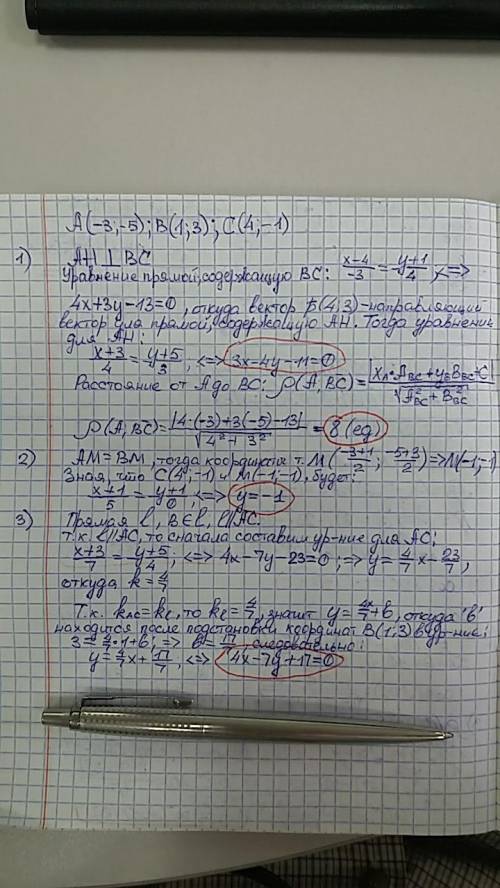 A(-3;-5); B(1;3); C(4;-1)
1) AH ⊥ BC
Уравнение прямой, содержащую BC: (x-4)/(-3) = (y+1)/4, <=>
4x+3y-13=0, откуда вектор p̄(4;3)-направляющий
вектор для прямой, содержащую AH. Тогда уравнение
для AH:
(x+3)/4 = (y+5)/3, <=> 3x-4y-11=0
Расстояние от A до BC: ρ(A,BC) = |x_A·A_BC + y_A·B_BC + C|/√(A²_BC + B²_BC)
ρ(A,BC) = |4·(-3)+3(-5)-13|/√(4²+3²) = 8 (ед)
2) AM = BM, тогда координаты т. M((-3+1)/2; (-5+3)/2) => M(-1;-1)
Зная, что C(4;-1) и M(-1;-1), будет:
(x+1)/5 = (y+1)/0, <=> y=-1
3) Прямая ℓ, B∈ℓ, ℓ//AC.
т.к. ℓ//AC, то сначала составим ур-ние для AC:
(x+3)/7 = (y+5)/4, <=> 4x-7y-23=0; => y = 4/7x - 23/7,
откуда k = 4/7
Т.к. k_AC = k_ℓ, то k_ℓ = 4/7, значит y = 4x/7 + b, откуда 'b'
находится после подстановки координат B(1;3) в ур-ние:
3 = 4/7·1+b, => b = 17/7, следовательно:
y = 4/7x + 17/7, <=> 4x-7y+17=0